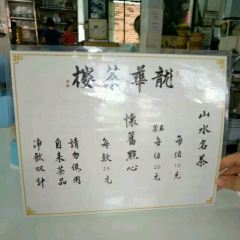 龍華茶樓
山水名茶
每位15元
茶盅每位20元
懷舊點心
每款25元
請勿使用
自来茶品
淨飲双計